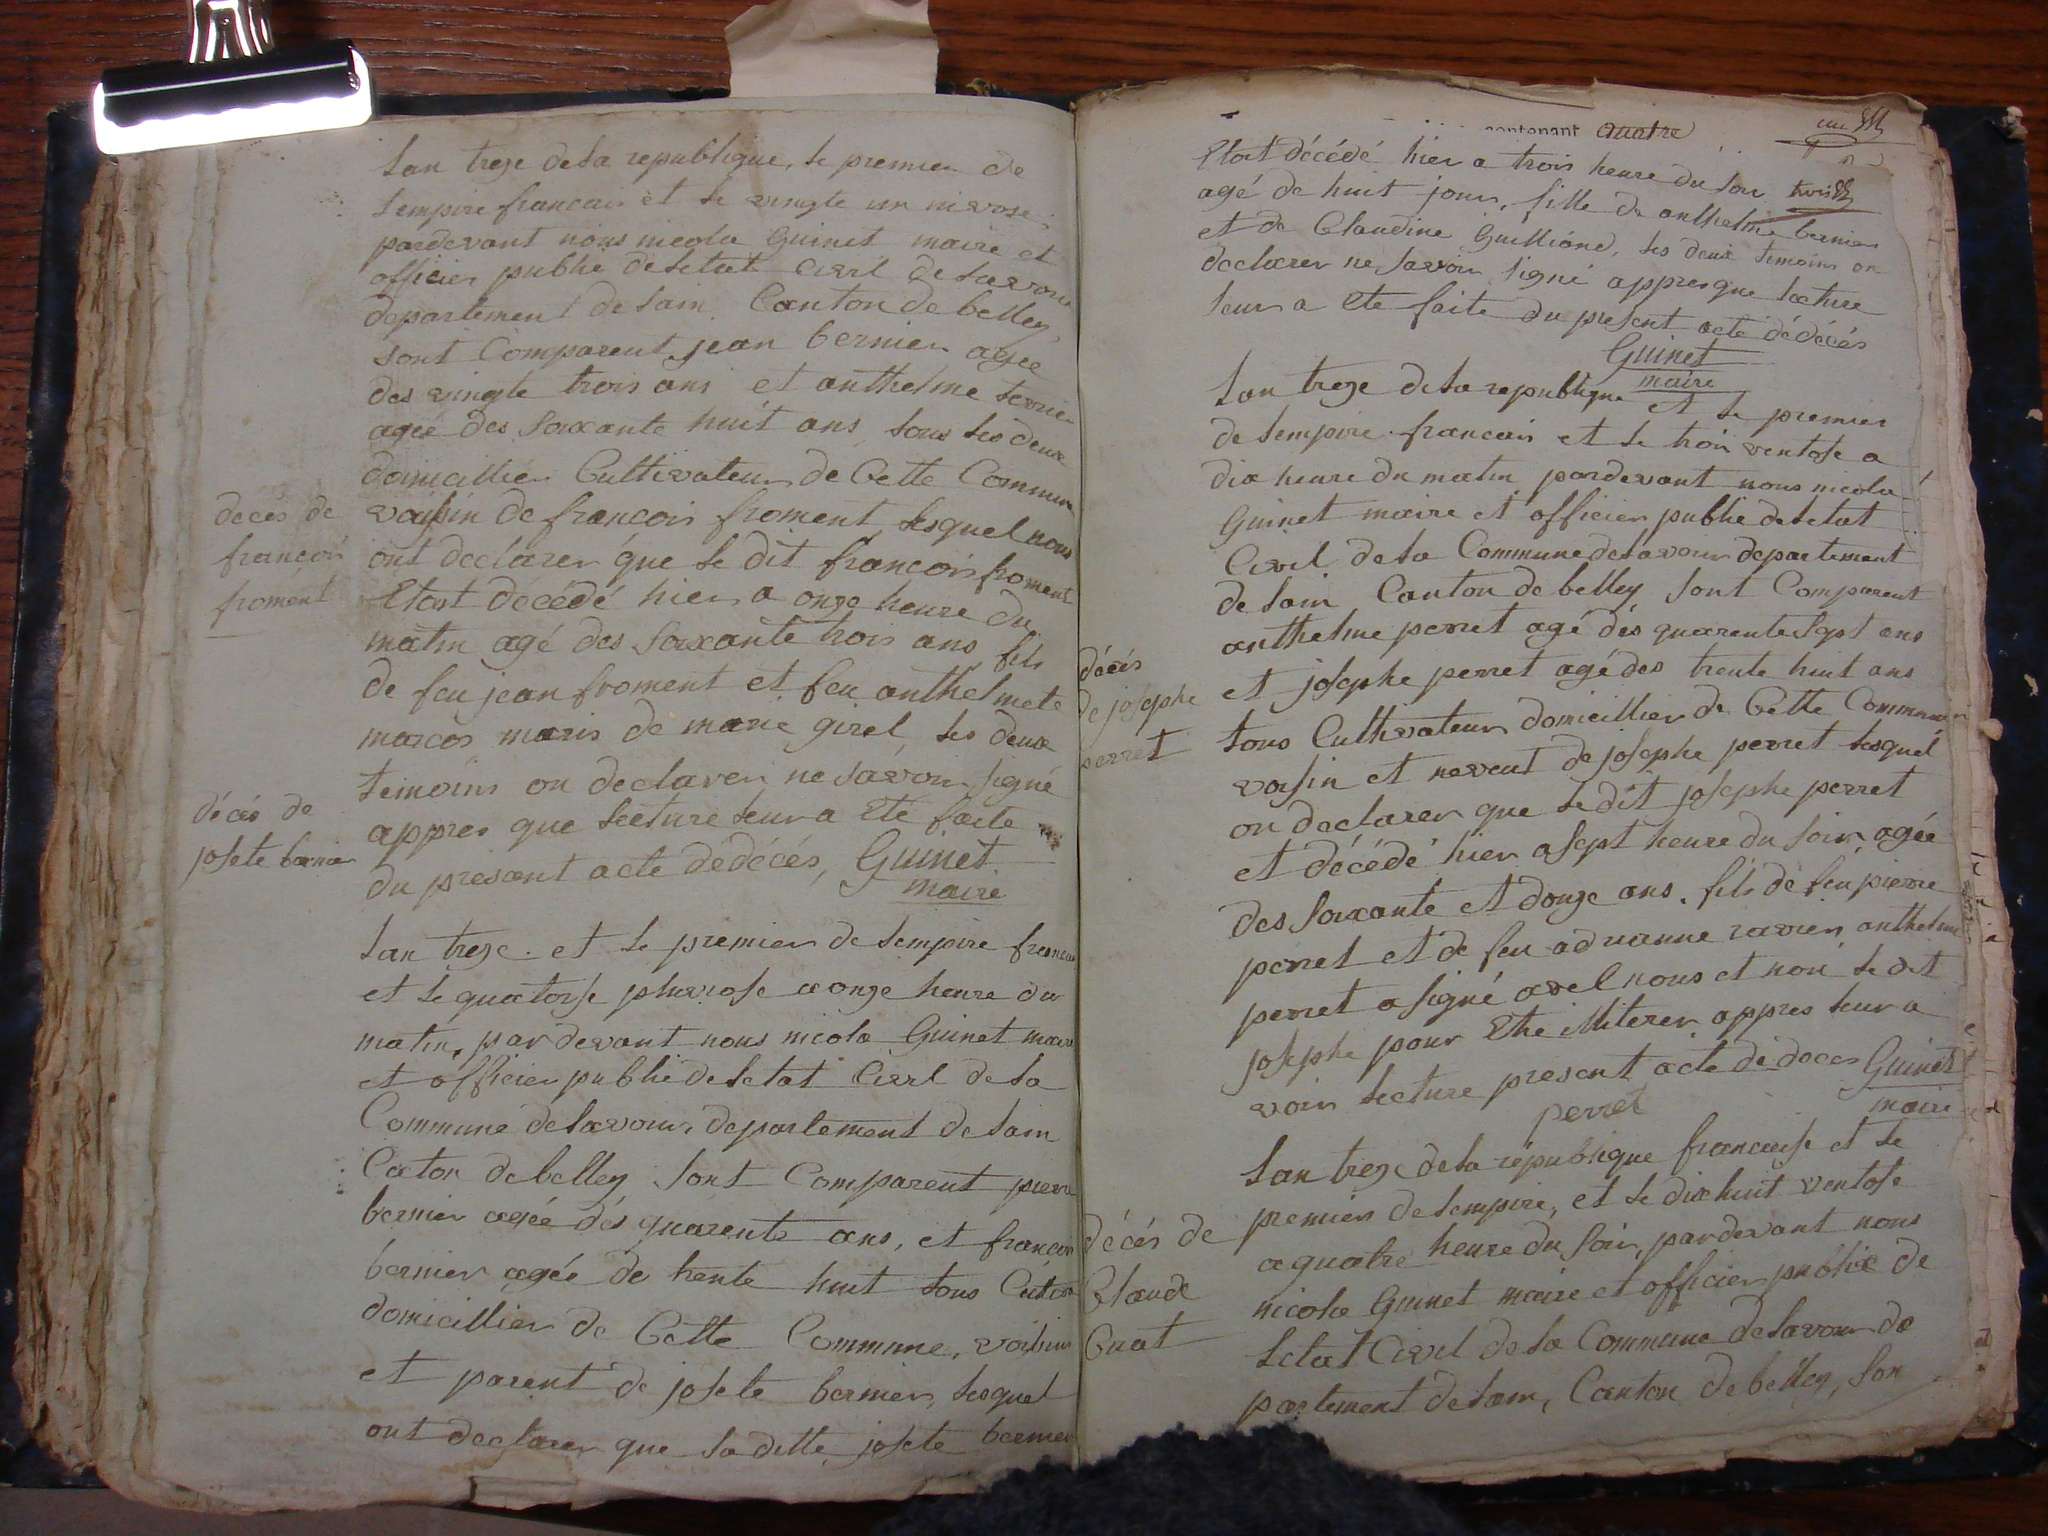 Lan treze de la republique, le premier de
Lempire francais et le vingte un nivose
pardevant nous nicola Guinet maire et
officier publie de letat Civil de Lavour
departement de Lain Canton de belley
sont Comparent jean bernier agée
des vingte trois ans et anthelme
agée des Soixante huit ans, tous les deux
domicillier Cultivateur de Cette Commune
voissin de francois froment lesquel nous
ont declarer que le dit francois froment
Etoit décédé hier a onze heure du
matin agé des Soixante trois ans fils
de feu jean froment et feu anthelmete
marcos maris de marie girel, les deux
temoins on declarer ne savoir signé
appres que lecture leur a Eté faite
du present acte dédécés, Guinet
maire
décés de
francois
froment
décés de
josete bernier
Lan treze et le premier de Lempire francais
et le quatorse pluviose a onze heure du
matin, pardevant nous nicola Guinet maire
et officier publie de letat Civil de la
Commune de Lavour, departement de Lain
Caton de belley Sont Comparent pierre
bernier agée dés quarente ans, et francois
bernier agée de trente huit tous
domicillier de Cette Commune, voissin
et parent de josete bernier, lesquel
ont declarer que la ditte josete bernier
contenant quatre
Etoit décédé hier a trois heure du soir
agé de huit jour, fille de anthelme bernier
et de Claudine Guillione, les deux temoins on
declarer ne Savoir Signé appres que lecture
leur a Eté faite du present acte dédécés
Guinet
maire
Lan treze de la republique et le premier
de Lempire francais et le troi ventose a
dix heure du matin pardevant nous nicola
Guinet maire et officier publie de letat
Civil de la Commune de lavour departement
de Lain Canton de belley Sont Comparent
anthelme perret agé dés quarente Sept ans
et josephe perret agé des trente huit ans
tous Cultivateur domicillier de Cette Commune
voisin et neveut de josephe perret lesquel
on declarer que le dit josephe perret
et décédé hier a sept heure du soir, agée
des Soixante et douze ans, fils de feu pierre
perret et de feu adrianne ravier, anthelme
perret a signé avel nous et non le dit
josephe pour Ethe illiterer appres leur a
voir lecture present acte de deces Guinet
perret maire
décés
de josephe
perret
Lan treze de la république francaise et le
premier de lempire, et le dix huit ventose
a quatre heure du Soir, pardevant nous
nicola Guinet maire et officier publie de
Letat Civil de la Commune de Lavour de
partement de Lain, Canton de belley, Son
décés de
Claude
Cuat